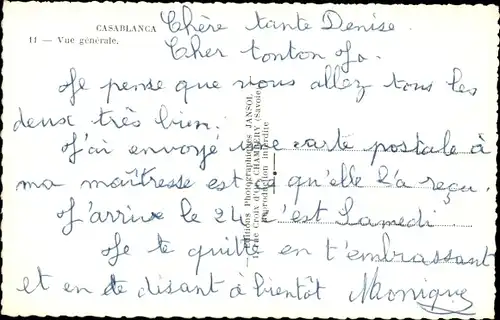 CASABLANCA
11 — Vue générale.
Chère tante Denise.
Cher tonton Jo.
Je pense que vous allez tous les
deux très bien.
J'ai envoyé une carte postale à
ma maîtresse est ce qu'elle l'a reçu.
J'arrive le 24 c'est Samedi.
Je te quitte en t'embrassant
et en te disant à bientôt Monique
Editions Photographiques JANSOL
Rue Croix d'Or, CHAMBÉRY (Savoie)
Reproduction interdite